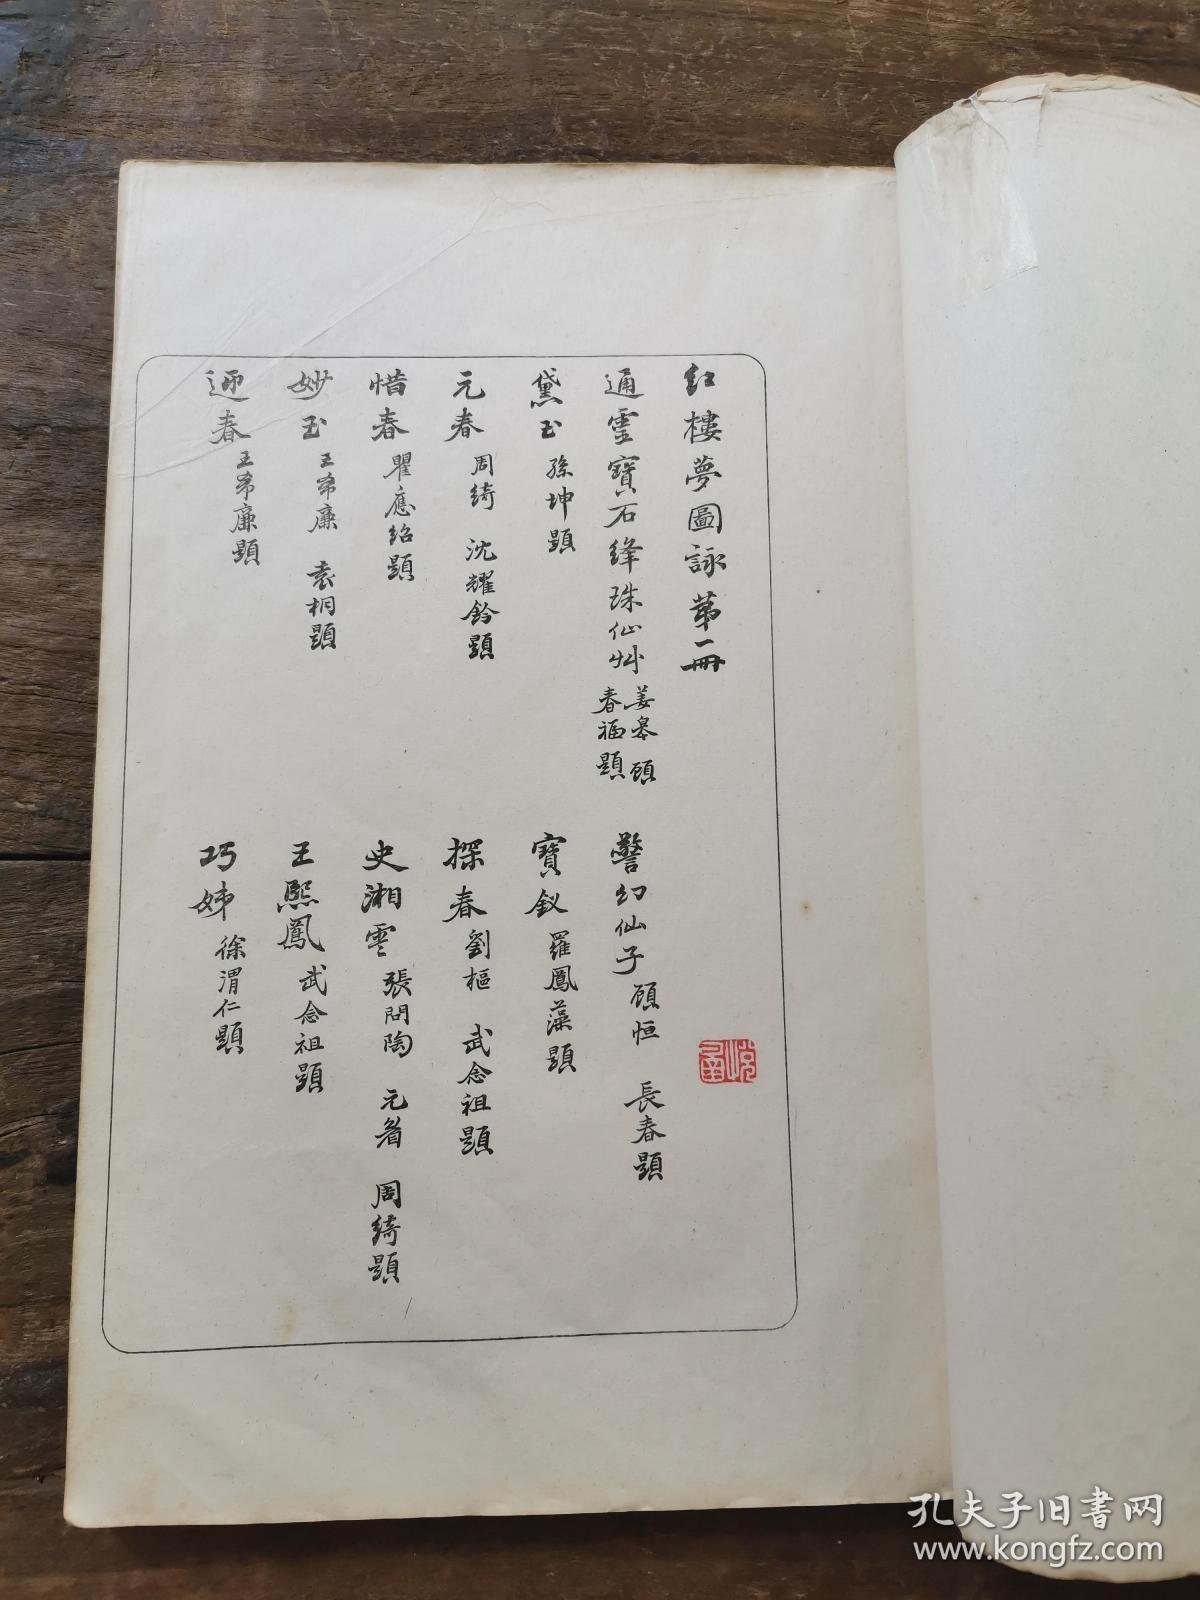 紅樓夢圖詠第一冊
通靈寶石絳珠仙艸 姜皋 顧春福題
警幻仙子 顧恒 長春題
黛玉 孫坤題
寶釵 羅鳳藻題
元春 周綺 沈耀鈴題
探春 劉樞 武念祖題
惜春 瞿應紹題
史湘雲 張問陶 元眉 周綺題
妙玉 王希廉 袁桐題
王熙鳳 武念祖題
迎春 王希廉題
巧姊 徐渭仁題
孔夫子旧書网
www.kongfz.com